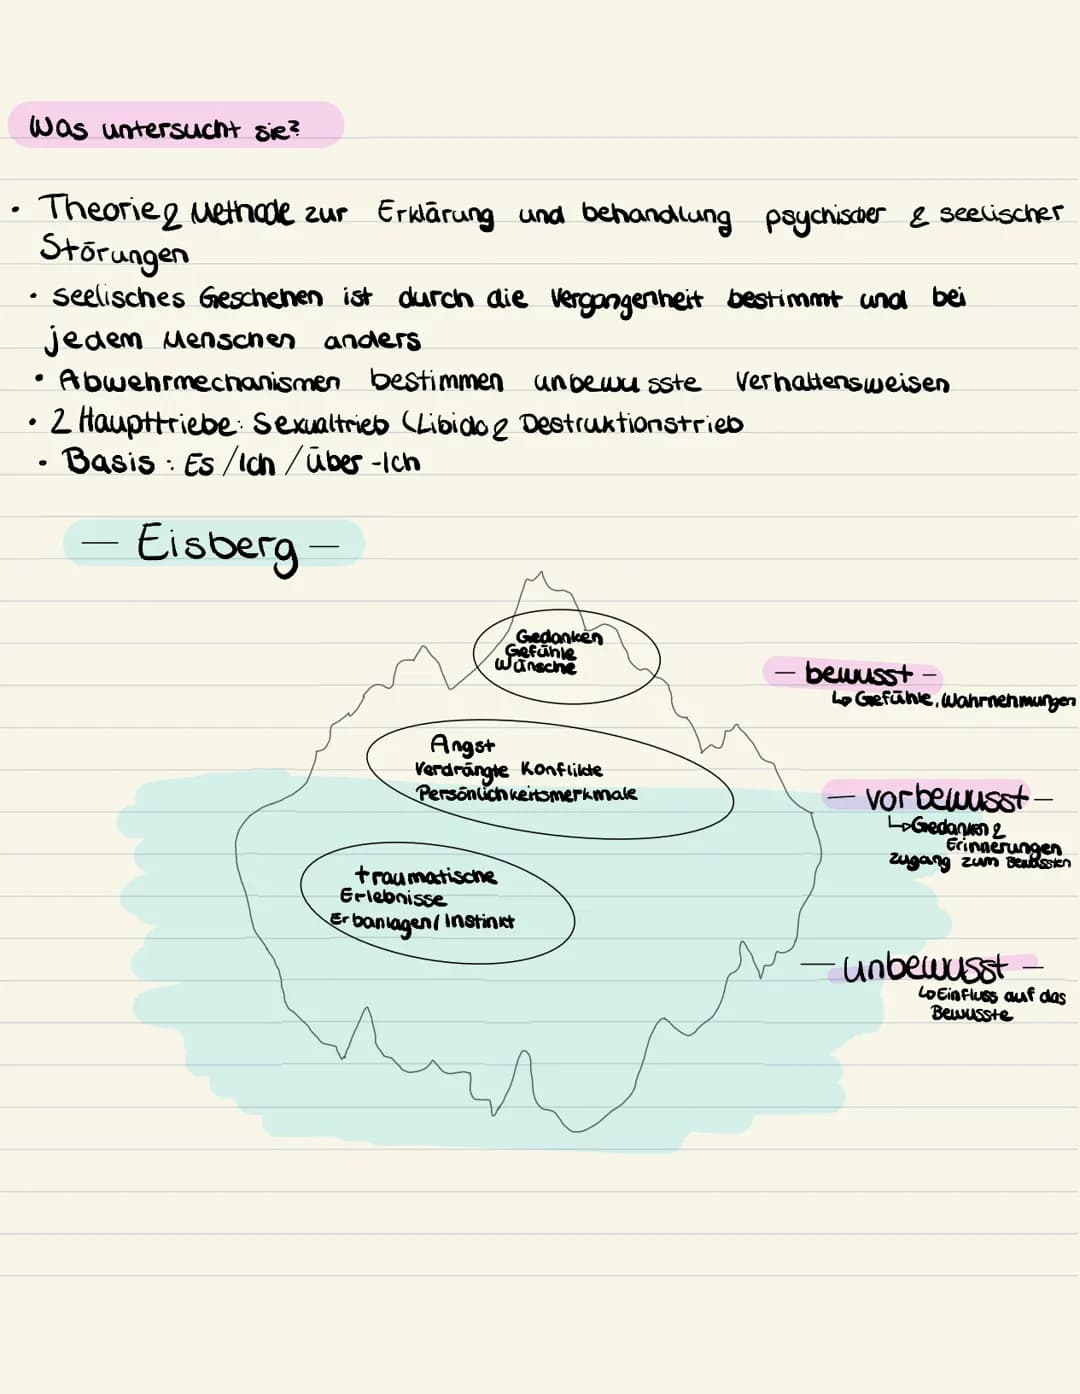 Was untersucht sie?
• Theorie & Methode zur Erklärung und behandlung psychischer & seelischer
Störungen
• seelisches Geschehen ist durch die Vergangenheit bestimmt und bei
jedem Menschen anders
• Abwehrmechanismen bestimmen unbewusste Verhaltensweisen
• 2 Haupttriebe: Sexualtrieb (Libido & Destruktionstrieb
• Basis: Es / Ich / über-Ich
— Eisberg —
Gedanken
Gefühle
Wünsche
— bewusst —
↳ Gefühle, Wahrnehmungen
Angst
Verdrängte Konflikte
Persönlichkeitsmerkmale
— vorbewusst —
↳ Gedanken &
Erinnerungen
Zugang zum Bewussten
traumatische
Erlebnisse
Erbanlagen / Instinkt
— unbewusst —
↳ Einfluss auf das
Bewusste